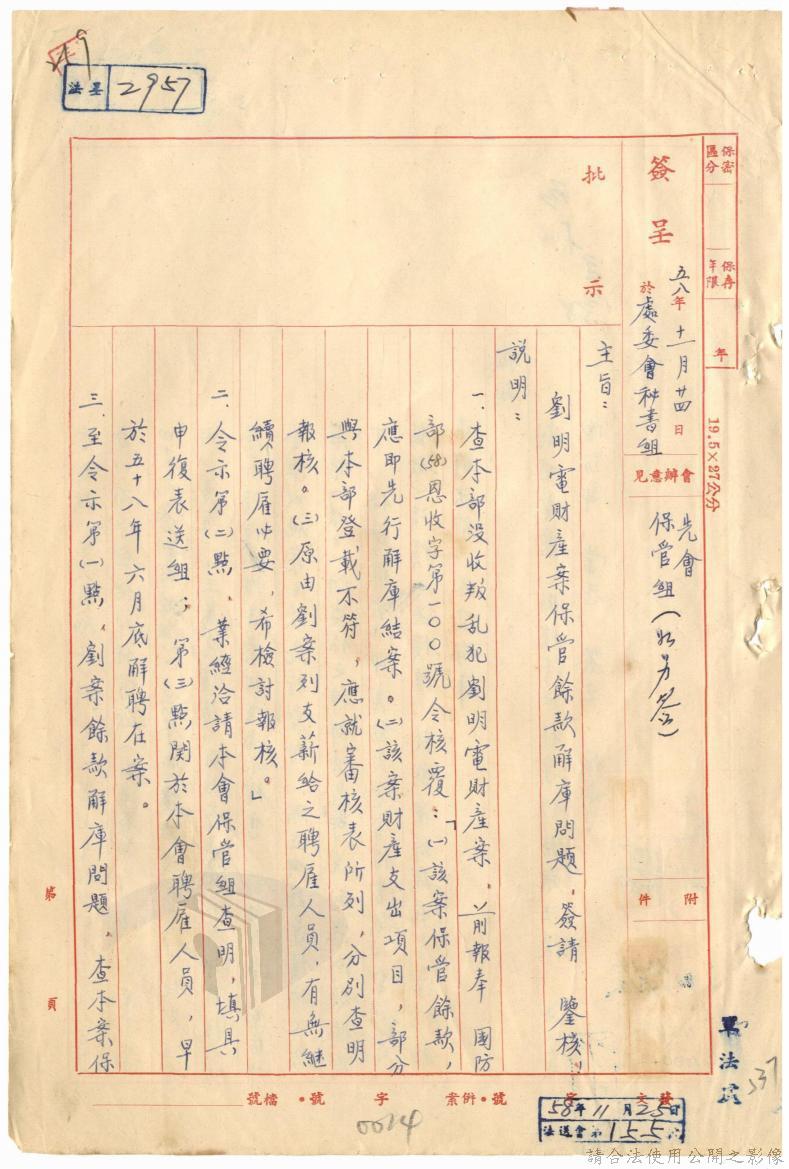 法呈 2957
保密區分
保存年限
年
19.5×27公分
簽呈
五八年十一月廿四日
於處委會秘書組
會辦意見
先會
保管組(如另簽)
附件
批示
主旨：
劉明電財產案保管餘款解庫問題，簽請 鑒核。
說明：
一、查本部沒收叛乱犯劉明電財產案，前報奉 國防
部(58)恩收字第一００號令核覆：「(一)該案保管餘款，
應即先行解庫結案。(二)該案財產支出項目，部分
與本部登載不符，應就審核表所列，分別查明
報核。(三)原由劉案列支薪給之聘雇人員，有無繼
續聘雇必要，希檢討報核。」
二、令示第(二)點，業經洽請本會保管組查明，填具
申復表送組；第(三)點関於本會聘雇人員，早
於五十八年六月底解聘在案。
三、至令示第(一)點，劉案餘款解庫問題，查本案保
第 頁
發文 字 號．併案 字 號．檔號
58年11月25日
法送會第155號
軍法處
537
0014
請合法使用公開之影像